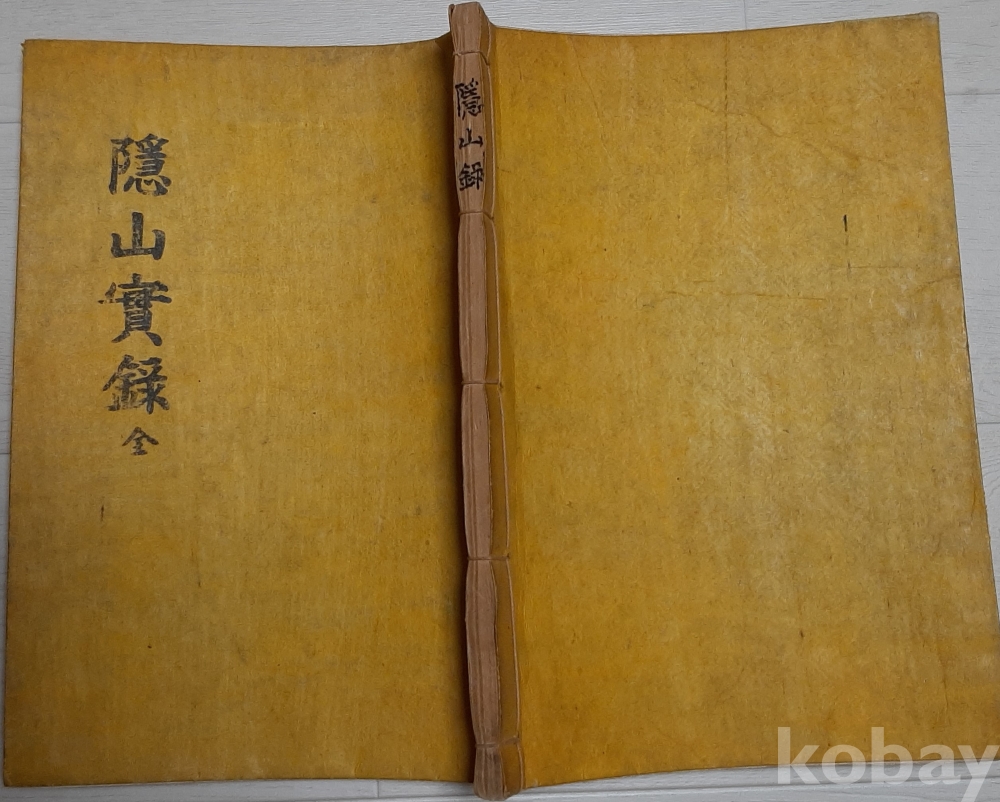 隱山實錄 全
隱山錄
kobay